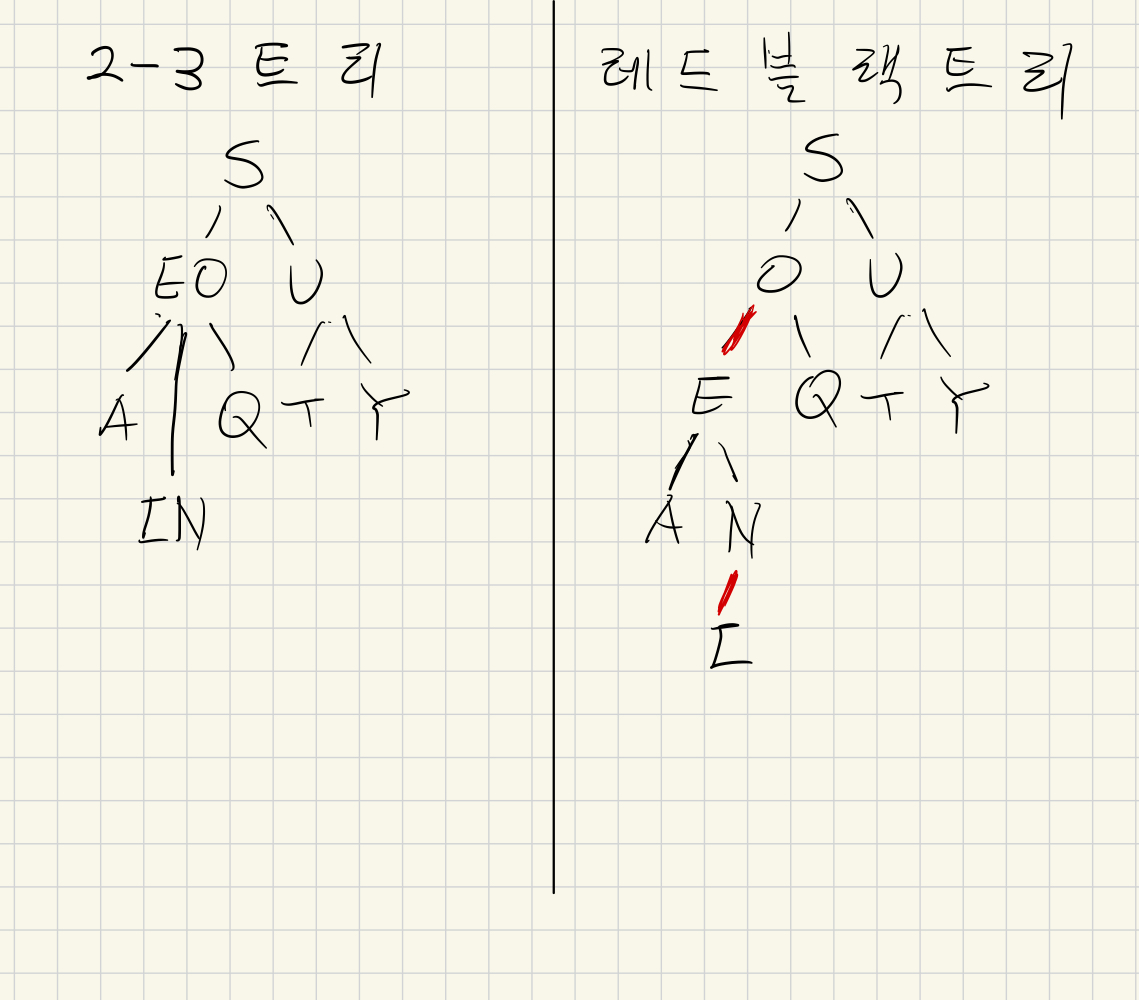 2-3 트리
S
EO U
A Q T Y
IN
레드 블랙트리
S
O U
E Q T Y
A N
I